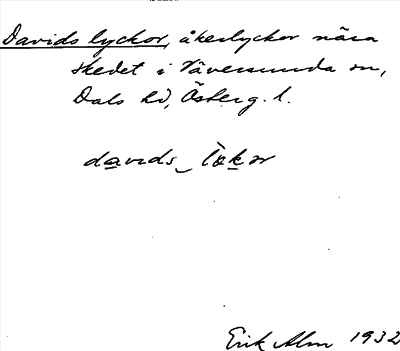 Davids lyckor, åkerlyckor nära
Skedet i Väversunda sn,
Dals hd, Österg. l.
davids lökor
Erik Alm 1932